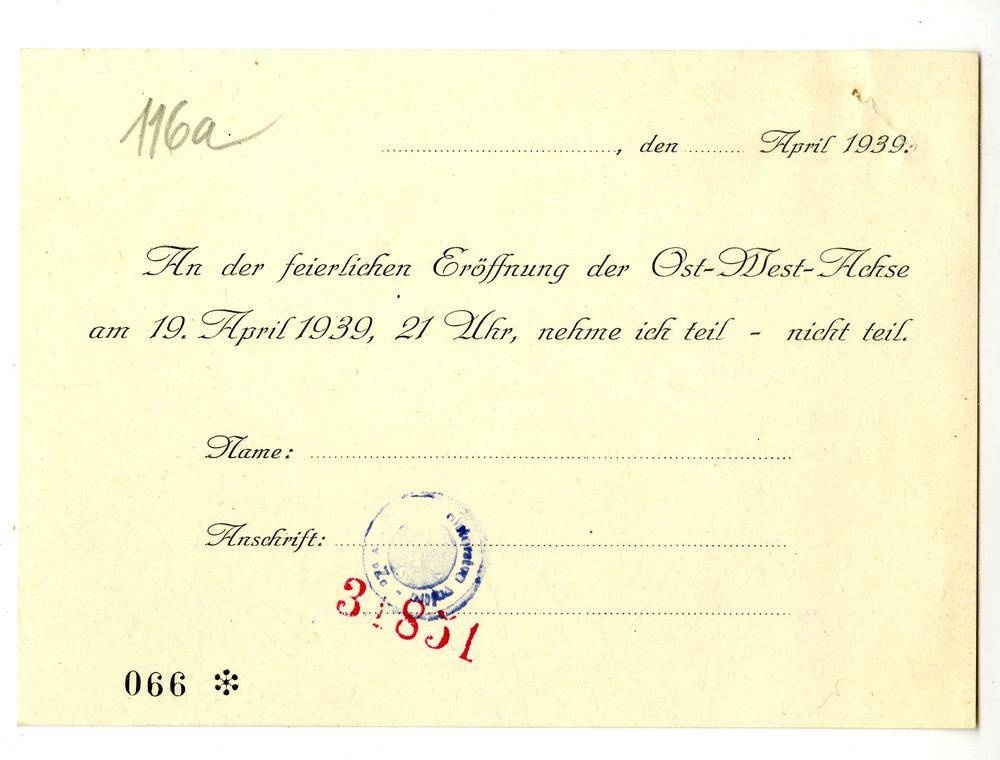 116a
, den April 1939.
An der feierlichen Eröffnung der Ost-West-Achse
am 19. April 1939, 21 Uhr, nehme ich teil - nicht teil.
Name:
Anschrift:
066 ✻